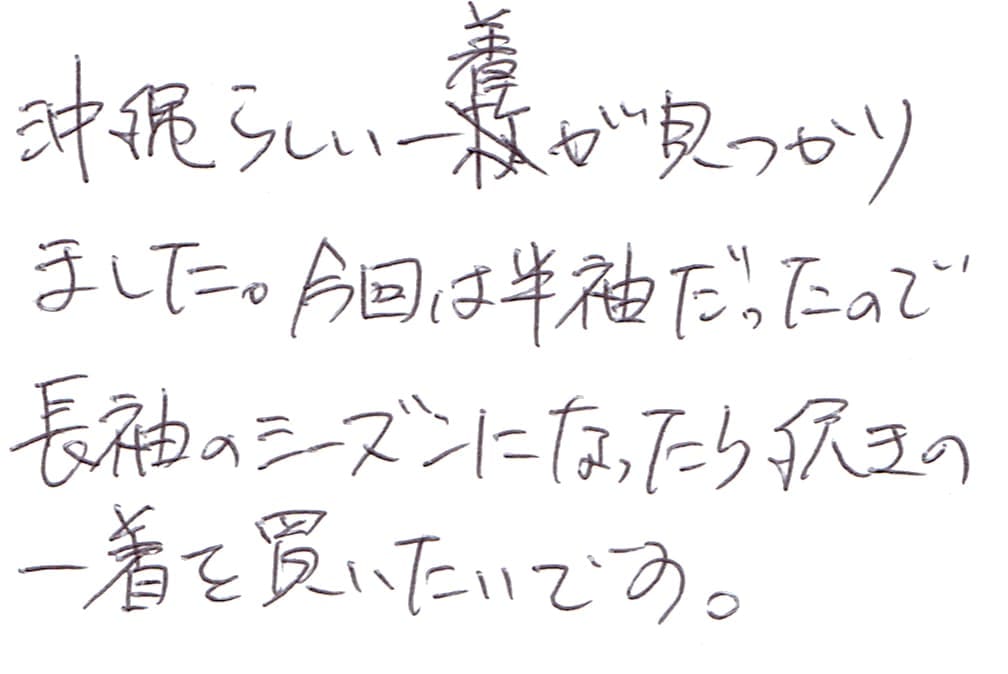 沖縄らしい一着が見つかり
ました。今回は半袖だったので
長袖のシーズンになったら沢王の
一着を買いたいです。